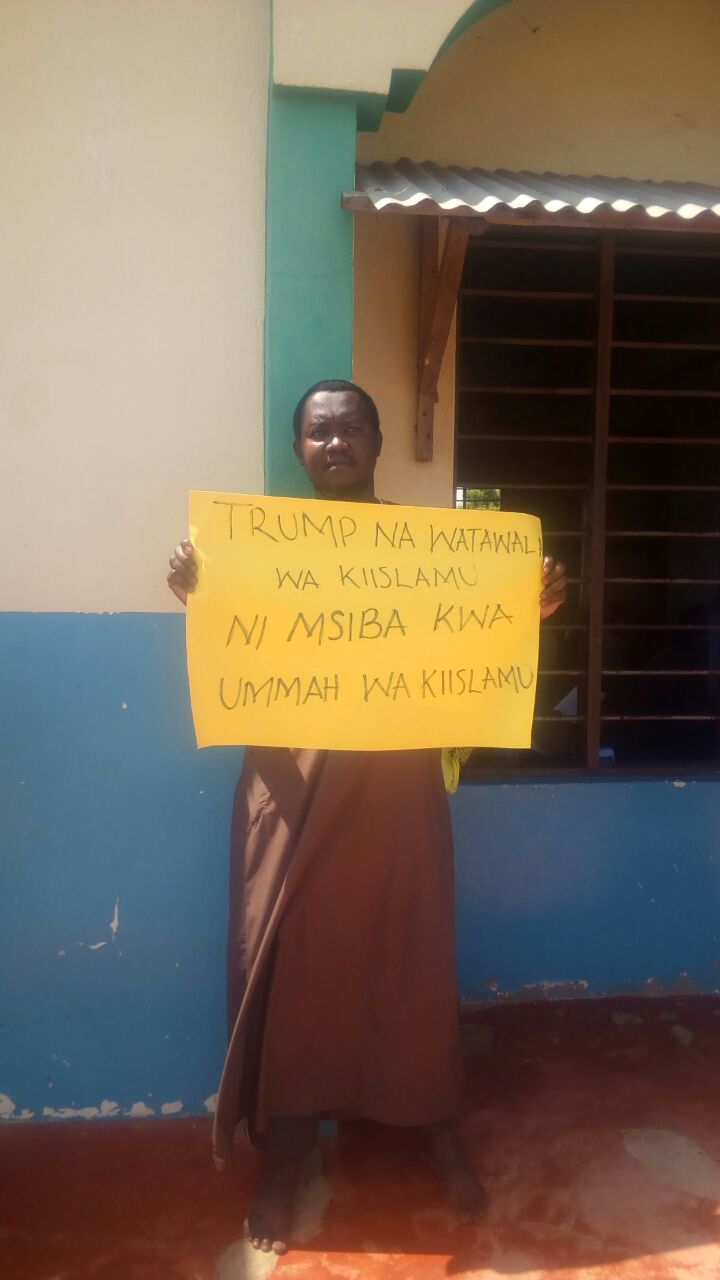 TRUMP NA WATAWALA
WA KIISLAMU
NI MSIBA KWA
UMMAH WA KIISLAMU